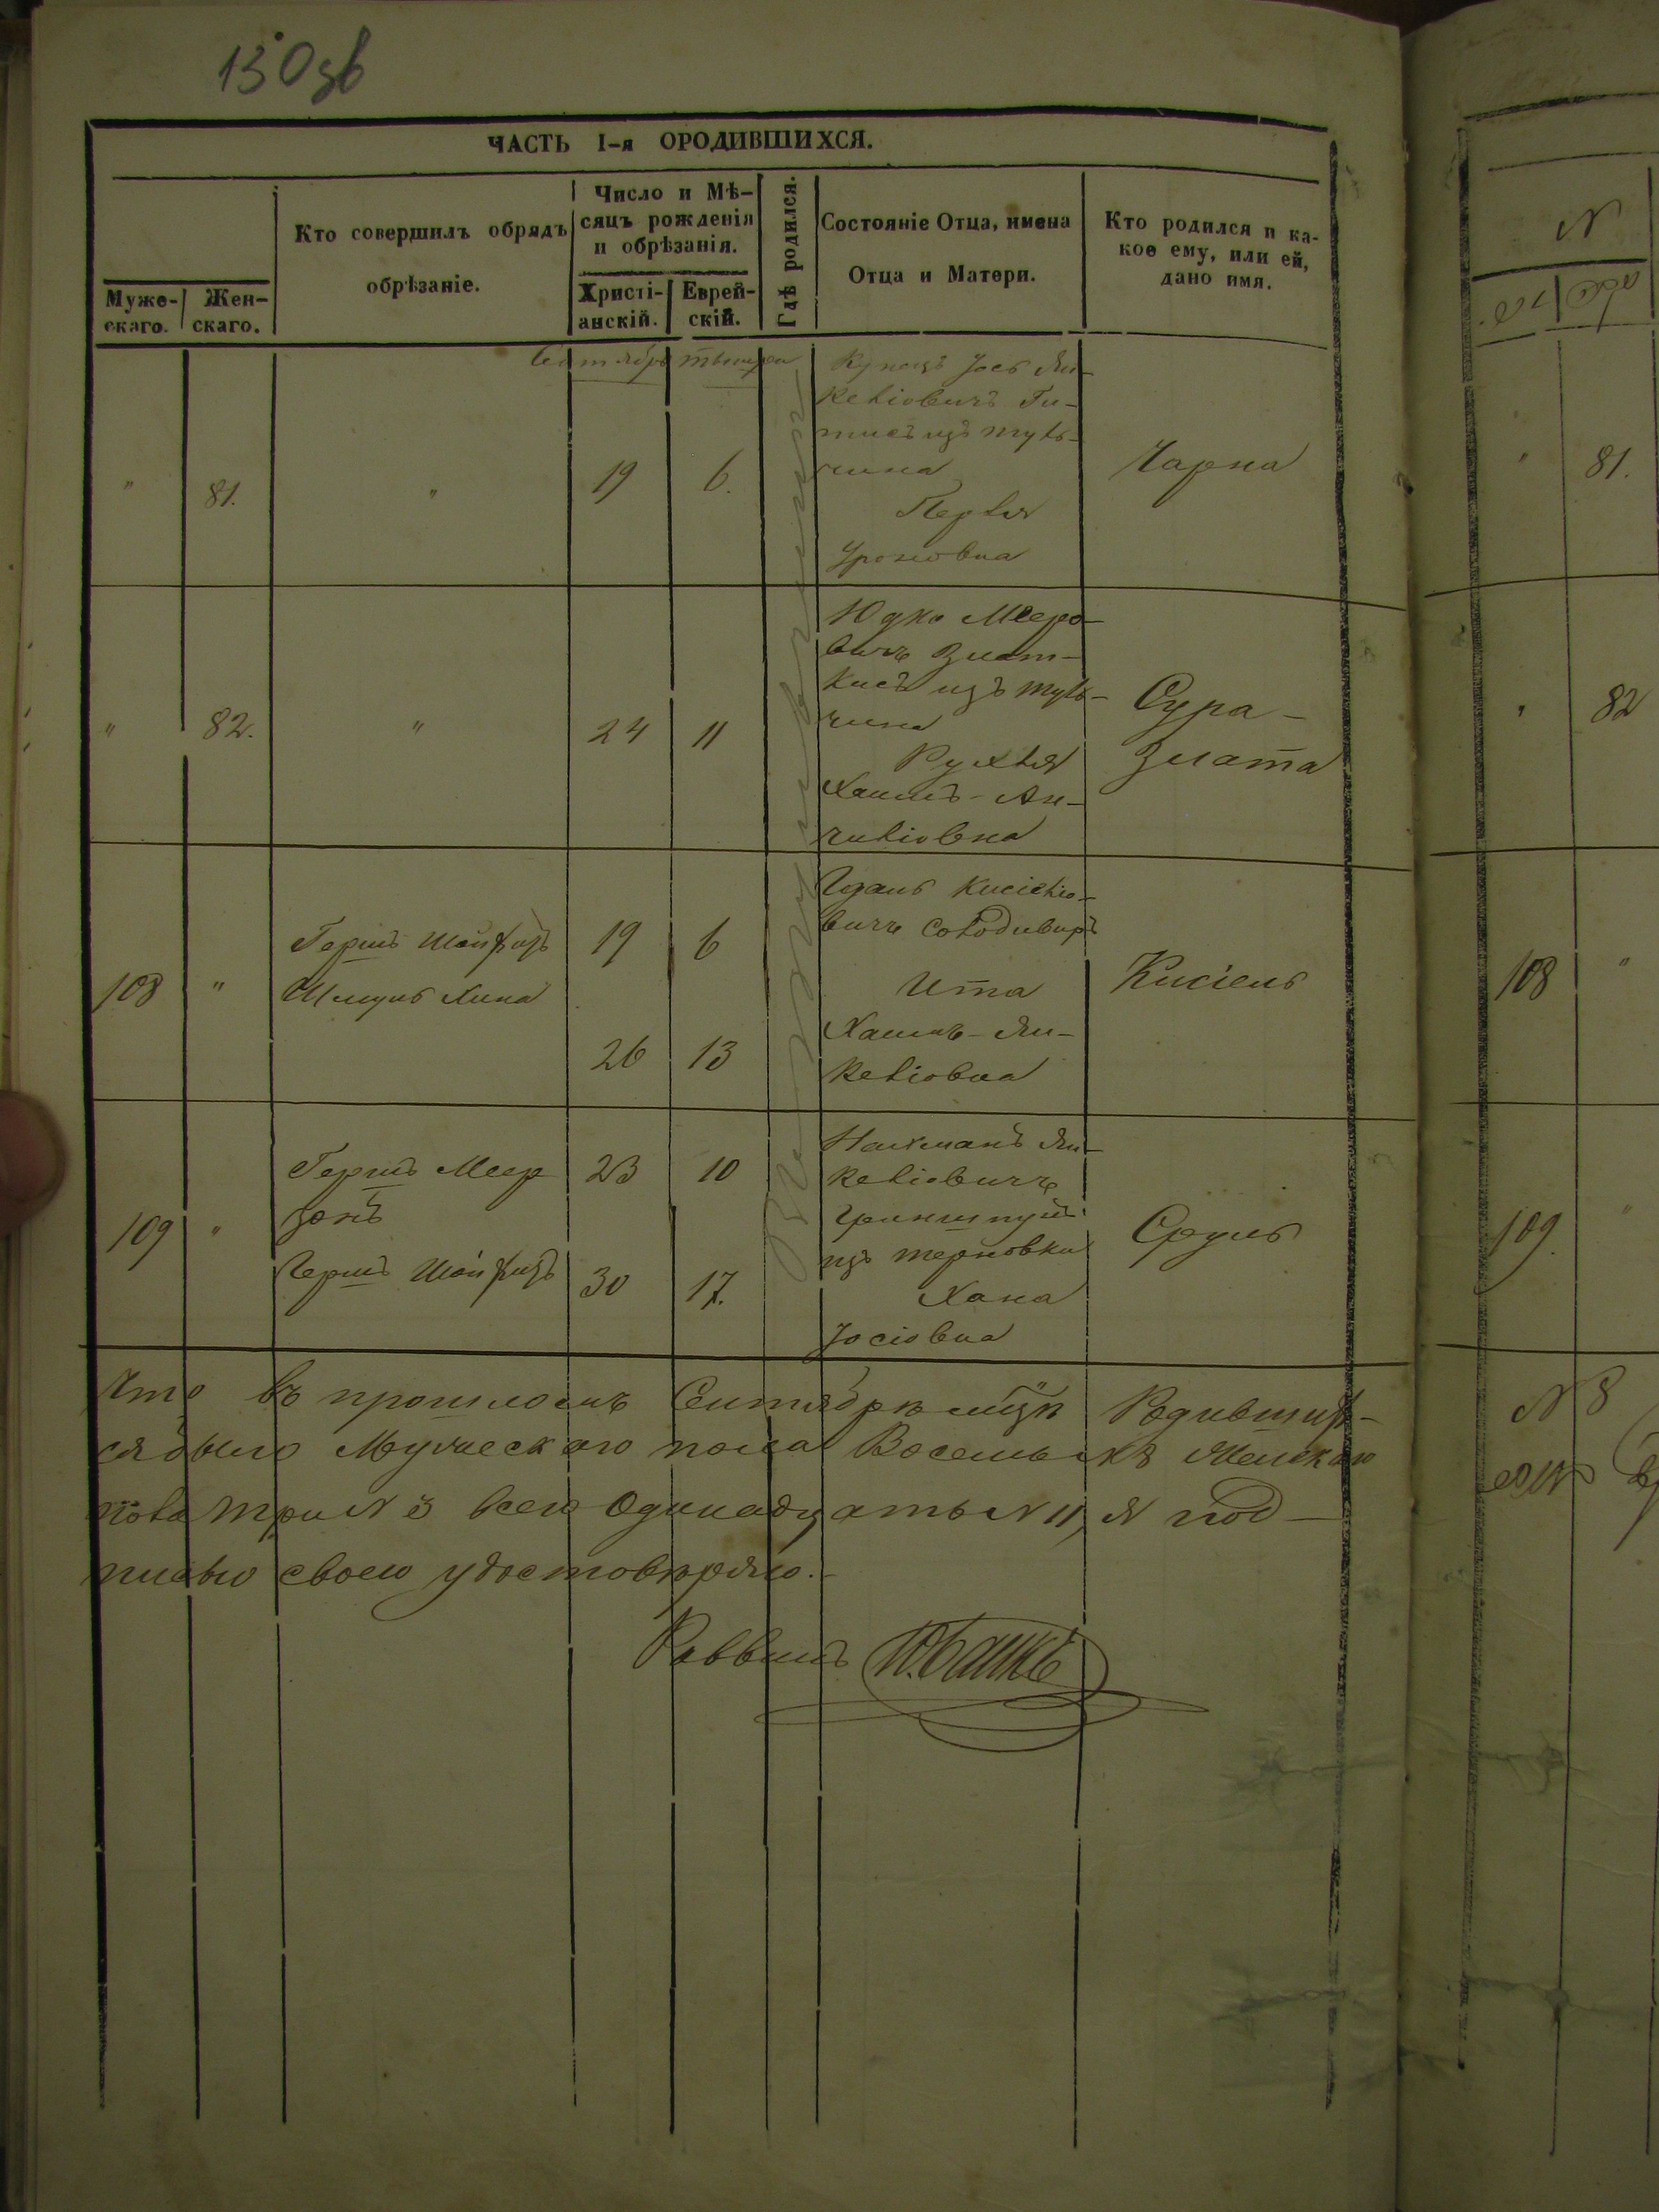 130зв
ЧАСТЬ I-я ОРОДИВШИХСЯ.
Мужескаго.
Женскаго.
Кто совершилъ обрядъ
обрѣзаніе.
Число и Мѣ-
сяцъ рожденія
и обрѣзанія.
Христі-
анскій.
Еврей-
скій.
Гдѣ родился.
Состояніе Отца, имена
Отца и Матери.
Кто родился и ка-
кое ему, или ей,
дано имя.
Сентябрь тышри
" 81. " 19 6.
Купецъ Іось Ян-
келіовичъ Ги-
тисъ изъ туль-
чина
Перля
Чарна
" 82. " 24 11
Юдко Мееро-
вичъ Злот-
кисъ изъ туль-
чина
Рухля
Хаимъ-Ан-
чиліовна
Сура-
Злата
108 "
Гершъ Шойфитъ
Шмуль Хина
19 6
26 13
Кисіеліо-
вичъ Солодиваръ
Ита
Хаимъ-Ян-
келіовна
Кисіель
109 "
Гершъ Меер
зонъ
Гершъ Шойфитъ
23 10
30 17.
Нахманъ Ян-
келіовичъ
изъ терновки
Хана
Іосіовна
Сруль
Что въ прошломъ Сентябрѣ мцѣ Родивших-
ся было Мужескаго пола Восемь №8 Женскаго
пола три №3 всего Одинадцать №11, Я под-
писью своею удостовѣряю.
Раввинъ
N
" 81.
" 82
108 "
109. "
N 8